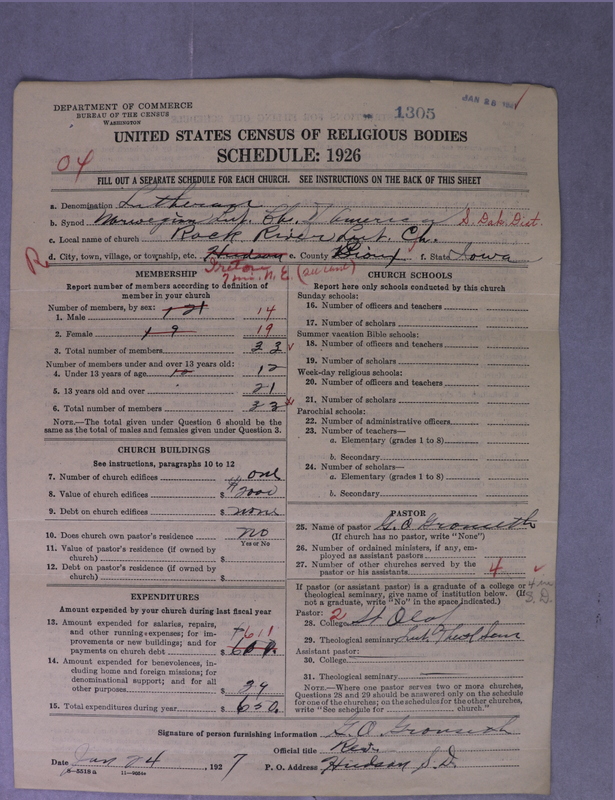 DEPARTMENT OF COMMERCE
BUREAU OF THE CENSUS
WASHINGTON
1305
JAN 28 1927
UNITED STATES CENSUS OF RELIGIOUS BODIES
SCHEDULE: 1926
04
FILL OUT A SEPARATE SCHEDULE FOR EACH CHURCH. SEE INSTRUCTIONS ON THE BACK OF THIS SHEET
a. Denomination Lutheran
b. Synod Norwegian Lut. Chr. of America S. Dak. Dist.
c. Local name of church Rock River Lut. Ch.
R d. City, town, village, or township, etc. Hudson e. County Sioux f. State Iowa
Ireton
7 mi. N. E. (rural)
MEMBERSHIP
Report number of members according to definition of
member in your church
Number of members, by sex:
1. Male 14
2. Female 19
3. Total number of members 33
Number of members under and over 13 years old:
4. Under 13 years of age 12
5. 13 years old and over 21
6. Total number of members 33
NOTE.—The total given under Question 6 should be the
same as the total of males and females given under Question 3.
CHURCH BUILDINGS
See instructions, paragraphs 10 to 12
7. Number of church edifices one
8. Value of church edifices $ 2000
9. Debt on church edifices $ none
10. Does church own pastor's residence no
Yes or No
11. Value of pastor's residence (if owned by
church) $
12. Debt on pastor's residence (if owned by
church) $
EXPENDITURES
Amount expended by your church during last fiscal year
13. Amount expended for salaries, repairs,
and other running expenses; for im-
provements or new buildings; and for
payments on church debt $ 611
14. Amount expended for benevolences, in-
cluding home and foreign missions; for
denominational support; and for all
other purposes $ 39
15. Total expenditures during year $ 650.
CHURCH SCHOOLS
Report here only schools conducted by this church
Sunday schools:
16. Number of officers and teachers
17. Number of scholars
Summer vacation Bible schools:
18. Number of officers and teachers
19. Number of scholars
Week-day religious schools:
20. Number of officers and teachers
21. Number of scholars
Parochial schools:
22. Number of administrative officers
23. Number of teachers—
a. Elementary (grades 1 to 8)
b. Secondary
24. Number of scholars—
a. Elementary (grades 1 to 8)
b. Secondary
PASTOR
25. Name of pastor G. O. Gronseth
(If church has no pastor, write "None")
26. Number of ordained ministers, if any, em-
ployed as assistant pastors
27. Number of other churches served by the
pastor or his assistants 4
4 in
S. D.
If pastor (or assistant pastor) is a graduate of a college or
theological seminary, give name of institution below. (If
not a graduate, write "No" in the space indicated.)
Pastor: 2
28. College St Olaf
29. Theological seminary Lut. Theol Sem
Assistant pastor:
30. College
31. Theological seminary
NOTE.—Where one pastor serves two or more churches,
Questions 28 and 29 should be answered only on the schedule
for one of the churches; on the schedules for the other churches,
write "See schedule for church."
Signature of person furnishing information G. O. Gronseth
Official title Rev.
Date Jan 24, 1927 P. O. Address Hudson S. D.
8-5518 a